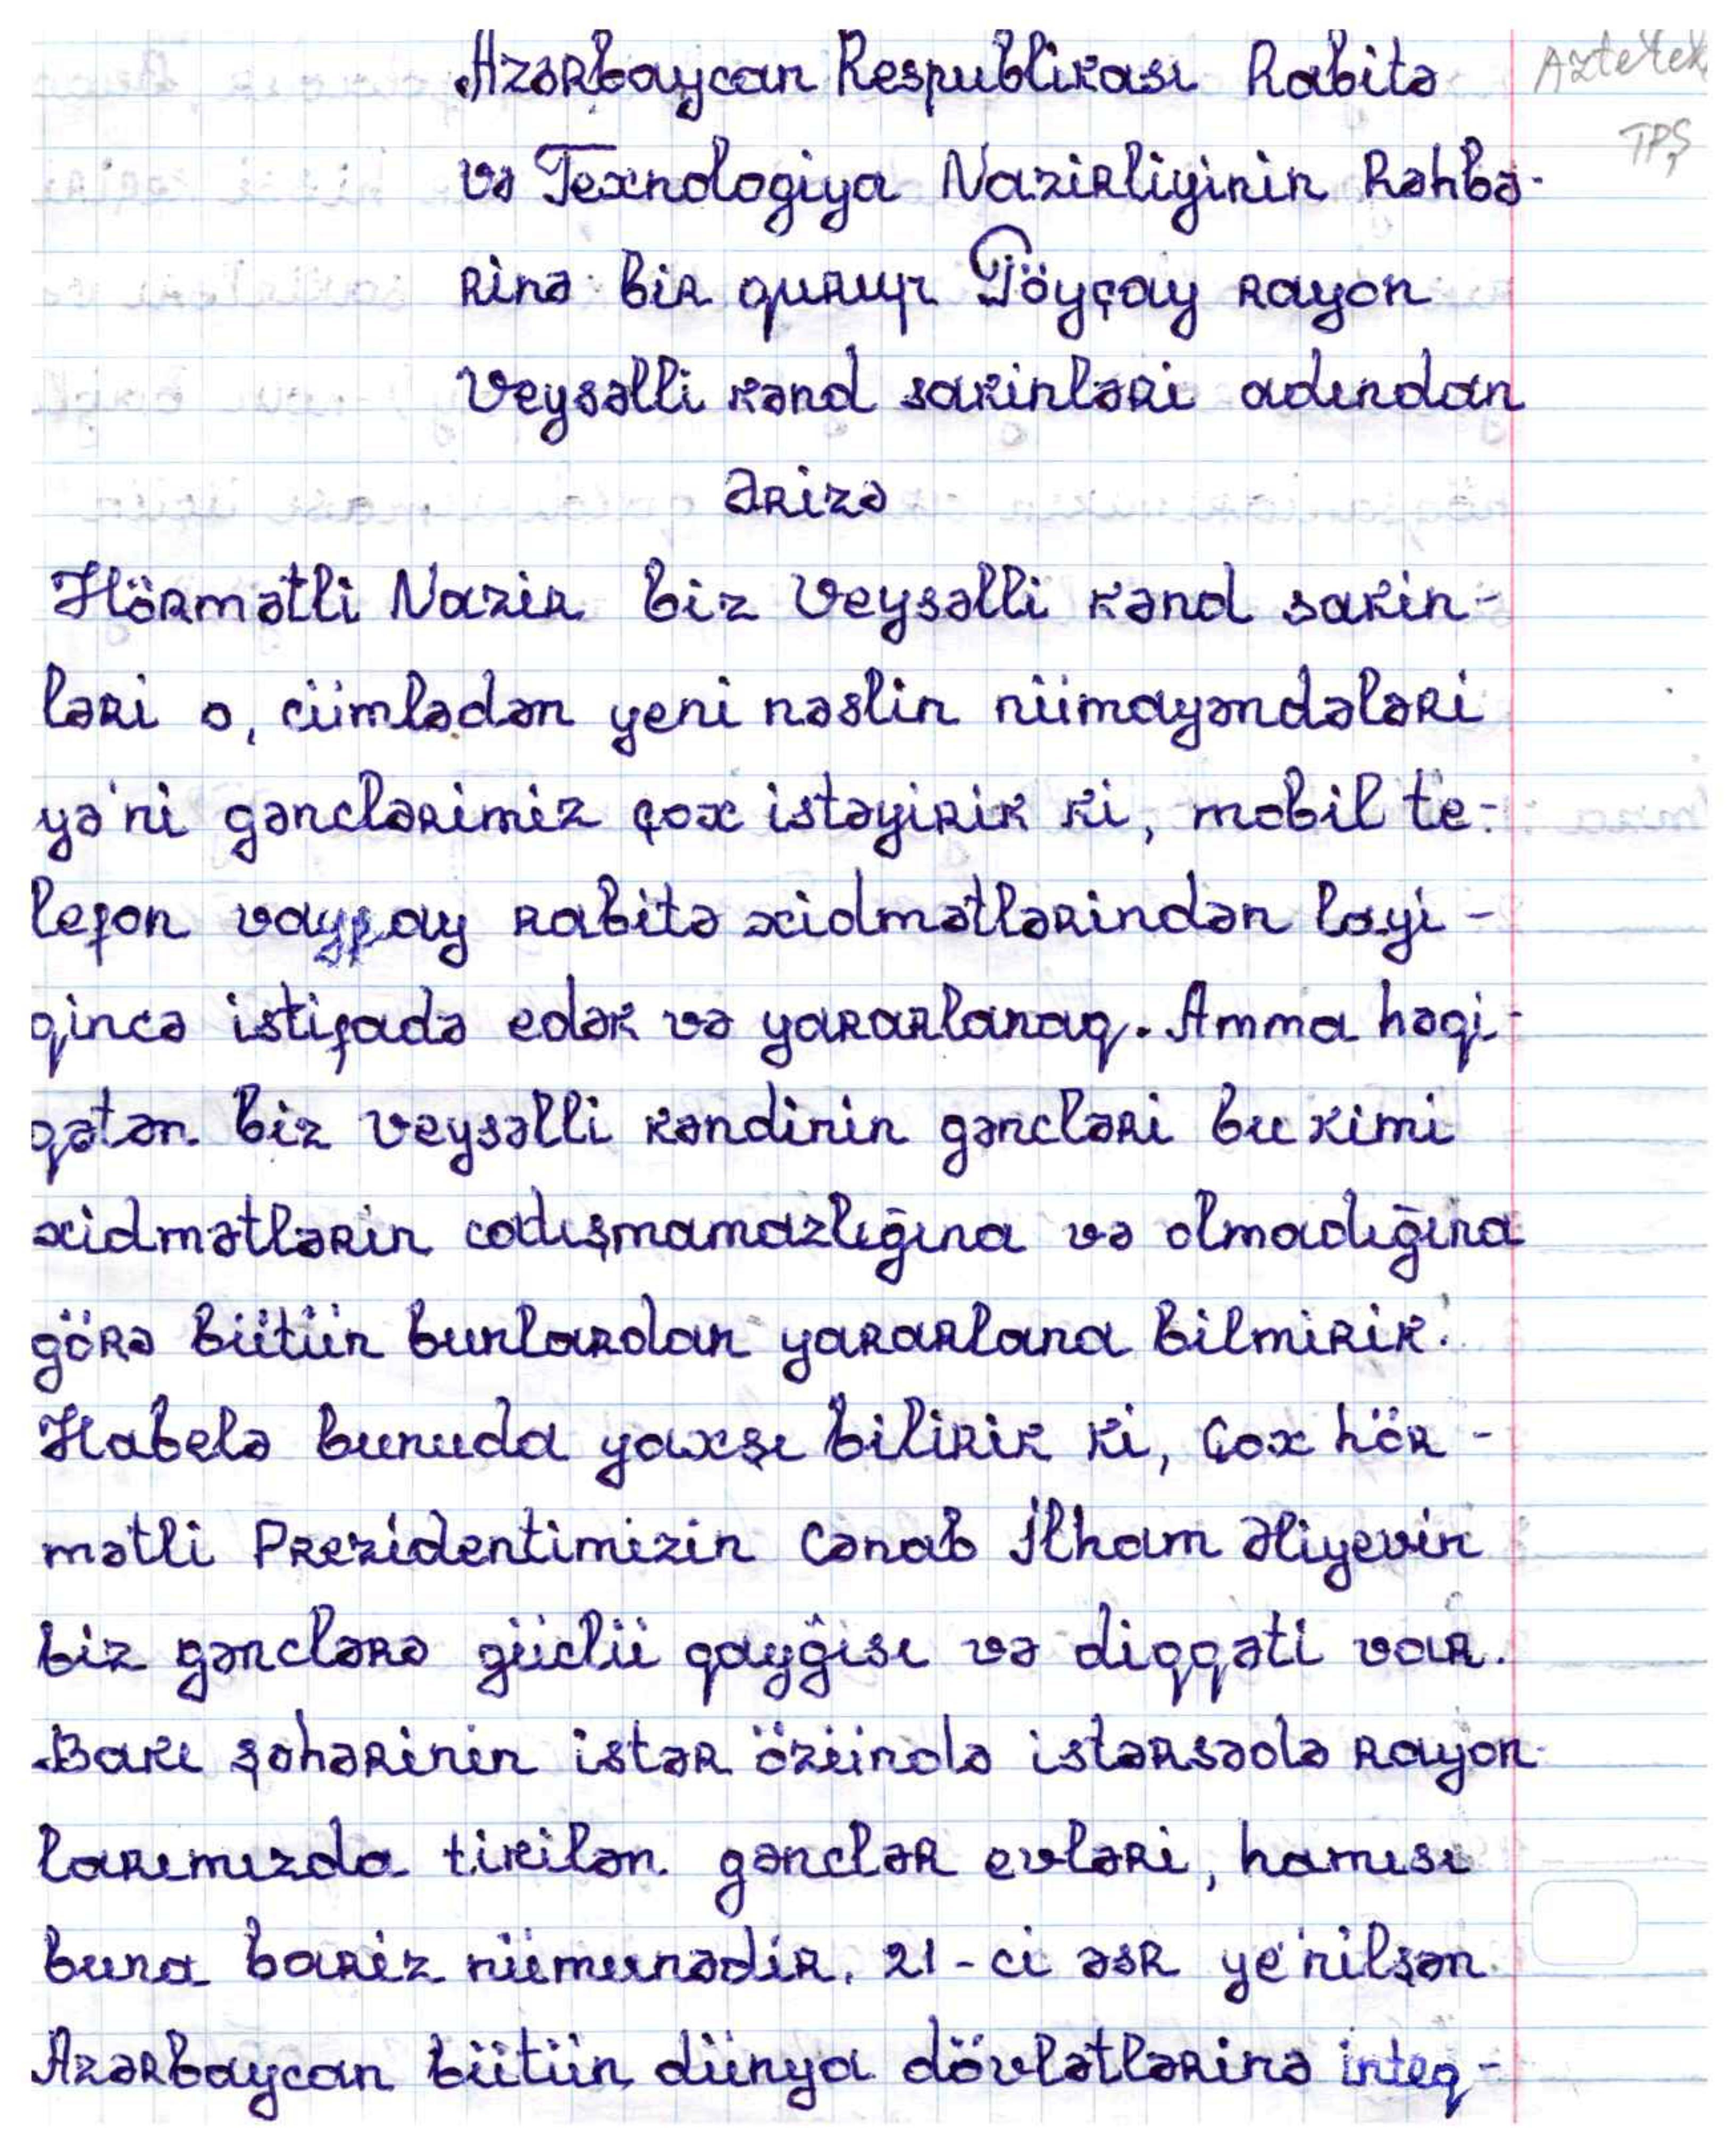 Azərbaycan Respublikası Rabitə
Aztelek
və Texnologiya Nazirliyinin Rəhbə-
TPŞ
rinə bir qurup Göyçay rayon
Veysəlli kənd sakinləri adından
Ərizə
Hörmətli Nazir biz Veysəlli kənd sakin-
ləri o, cümlədən yeni nəslin nümayəndələri
yə'ni gənclərimiz çox istəyirik ki, mobil te-
lefon vayfay rabitə xidmətlərindən layi-
qincə istifadə edək və yararlanaq. Amma həqi-
qətən biz veysəlli kəndinin gəncləri bu kimi
xidmətlərin catışmamazlığına və olmadığına
görə bütün bunlardan yararlana bilmirik.
Habelə bunuda yaxşı bilirik ki, Çox hör-
mətli Prezidentimizin Cənab İlham Əliyevin
biz gənclərə güclü qayğısı və diqqəti var.
Bakı şəhərinin istər özündə istərsədə rayon
larımızda tikilən gənclər evləri, hamısı
buna bariz nümunədir. 21-ci əsr ye'nilşən
Azərbaycan bütün dünya dövlətlərinə inteq-